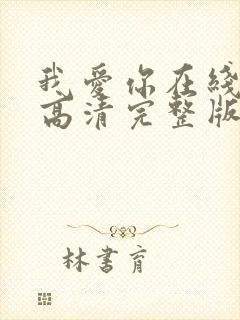 我愛你在綫
高清完整版
林書育